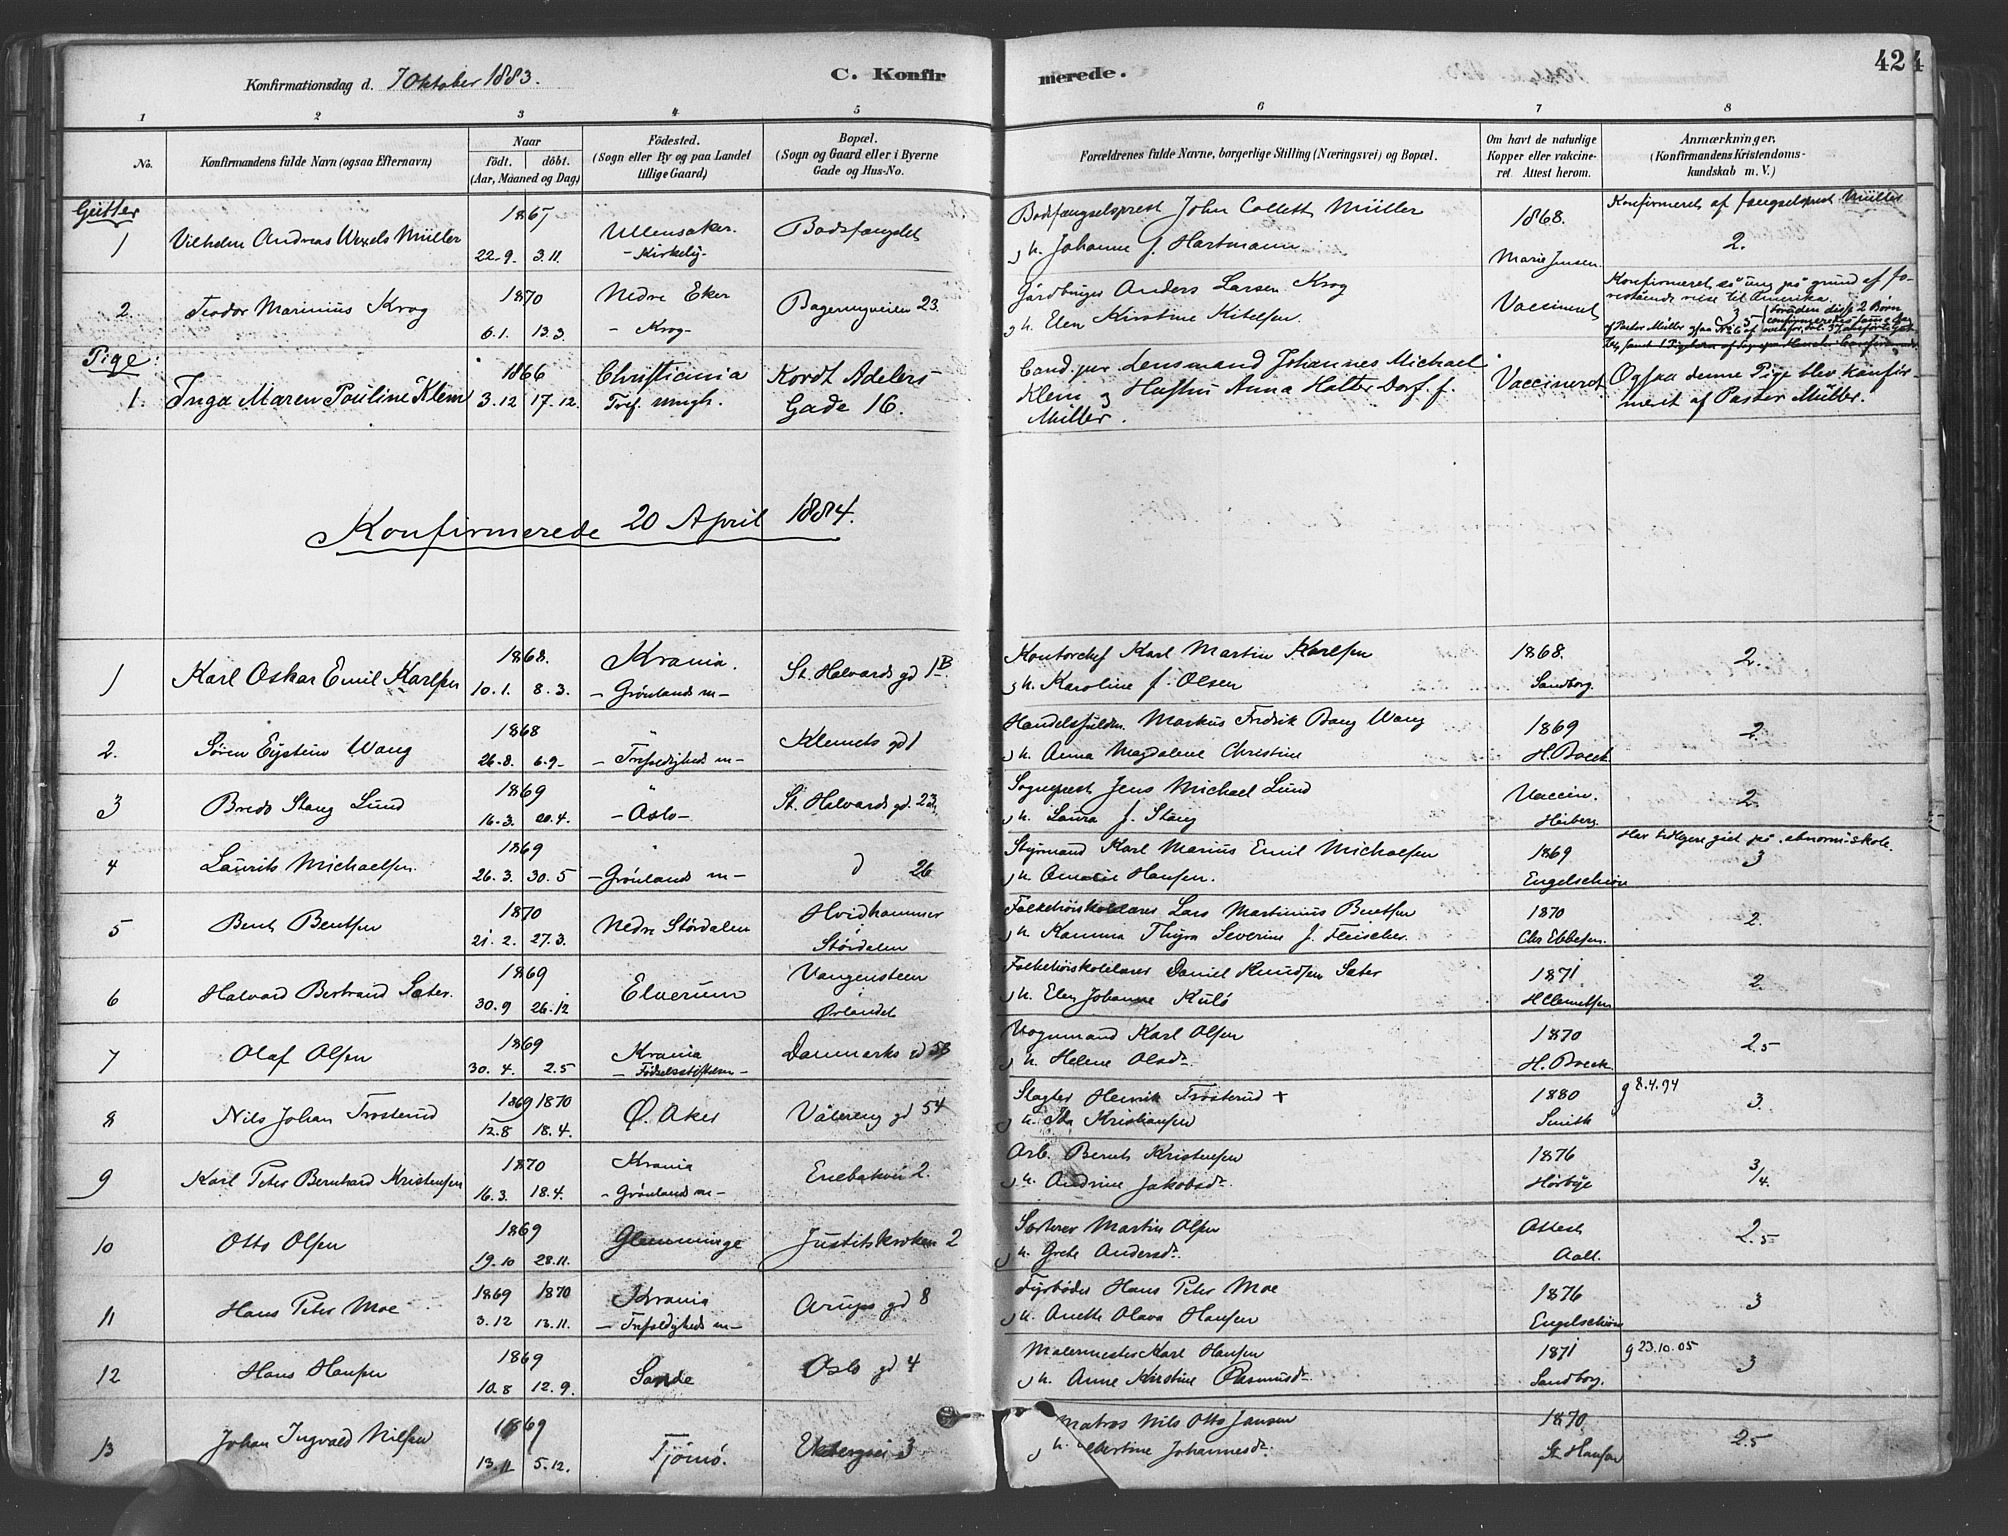 Konfirmationsdag d. 7 Oktober 1883.
C. Konfir
merede.
42
1 2 3 4 5 6 7 8
No.
Konfirmandens fulde Navn (ogsaa Efternavn)
Naar
födt. döbt.
(Aar, Maaned og Dag)
Födested.
(Sogn eller By og paa Landet
tillige Gaard)
Bopæl.
(Sogn og Gaard eller i Byerne
Gade og Hus-No.
Forældrenes fulde Navne, borgerlige Stilling (Næringsvei) og Bopæl.
Om havt de naturlige
Kopper eller vakcine-
ret. Attest herom.
Anmærkninger.
(Konfirmandens Kristendoms-
kundskab m. V.)
Gutter
1 Vilhelm Andreas Wexels Müller
1867
22-9. 3.11.
Ullensaker.
- Kirkeby-
Bodsfængslet
Bodsfængselsprest John Collett Müller
og h. Johanne f. Hartmann.
1868.
Marie Jensen.
Konfirmeret af fængselsprest Müller
2.
2 Teodor Marinius Krog
1870
6.1. 13.3.
Nedre Eker
- Krog-
Vaccineret
Gårdbruger Anders Larsen Krog
og h. Elen Kirstine Kitelsen.
Konfirmeret så ung på grund af fo-
restående reise til Amerika.
3
Pige
1. Inga Maren Pauline Klem
1866
3.12 17.12.
Christiania
Tref. mngh.
Kordt Adelers
Gade 16.
Cand. jur. Lensmand Johannes Michael
Klem og Hustru Anna f.
Müller.
Vaccineret
Ogsaa denne Pige blev konfir-
meret af Pastor Müller.
Konfirmerede 20 April 1884.
1 Karl Oskar Emil Karlsen
1868.
10.1. 8.3.
Krania.
- Grönlands m-
St. Halvards gd 1B
Karl Martin Karlsen
og h. Karoline f. Olsen
1868.
Sandborg.
2.
2. Sören Eystein Wang
1868
26.8. 6.9-
"
- Trefoldigheds m-
Klemets gd 1
Markus Fredrik Bang Wang
og h. Anna Magdalene Christine
1869
H. Boeck
2.
3 Bredo Stang Lund
1869
16.3. 20.4.
"
- Oslo-
St. Halvards gd. 23
Sogneprest Jens Michael Lund
og h. Laura f. Stang
Vaccin.
Heiberg.
2.
4 Laurits Michaelsen.
1869
26.3. 30.5
"
- Grönlands m-
d 26
Styrmand Karl Marius Emil Michaelsen
og h. Amalie Hansen.
1869
Engelschiön
Har tidligere gået på abnormskole.
3
5 Bent Bentsen
1870
21.2. 27.3.
Nedre Stördalen
Hvidhammer
i
Stördalen
Folkehöiskolelærer Lars Martinius Bentsen
og h. Kamma Thyra Severine f. Fleischer.
1870
Chr Ebbesen.
2.
6 Halvard Bertrand Sæter.
1869
30.9 26.12
Elverum
Vangensteen
Ørlandet
Folkehöiskolelærer Daniel Knudsen Sæter
og h. Elen Johanne Kulö
1871
H Clemetsen
2.
7 Olaf Olsen
1869
30.4. 2.5
Krania
- Födselsstiftelsen-
Danmarks gd 53
Vognmand Karl Olsen
og h. Helene Olsdr.
1870
H. Boeck
2.5
8 Nils Johan Trosterud
1869 1870
12.8 18.4.
Ø. Aker
Vålereng gd 54
Slagter Henrik Trosterud +
og h. Ida Kristiansen
1880
Smith
g 8.4.94
3.
9 Karl Peter Bernhard Kristensen
1870
16.3. 18.4.
Krania
- Grönlands m-
Enebakvei 2.
Arb. Bernt Kristensen
og h. Andrine Jakobsdr.
1876
Hörbye
3/4.
10 Otto Olsen
1869
19.10 28.11.
Glemminge
Justitskroken 2
Martin Olsen
og h. Grete Andersdr.
Attest
Aall.
2.5
11 Hans Peter Moe
1869 1870
3.12 13.11.
Krania
- Trefoldigheds m-
Arups gd 8
Fyrböder Hans Peter Moe
og h. Anette Olava Hansen
1876
Engelschiön
3
12 Hans Hansen
1869
10.8 12.9.
Sande
Oslo gd 4
Malermester Karl Hansen
og h. Anne Kristine Rasmusdr.
1871
Sandborg.
g 23.10.05
3
13 Johan Ingvald Nilsen
1869
13.11 5.12.
Tjömö.
3
Matros Nils Otto Jansen
og h. Johannesdr.
1870
St. Hansen
2.5